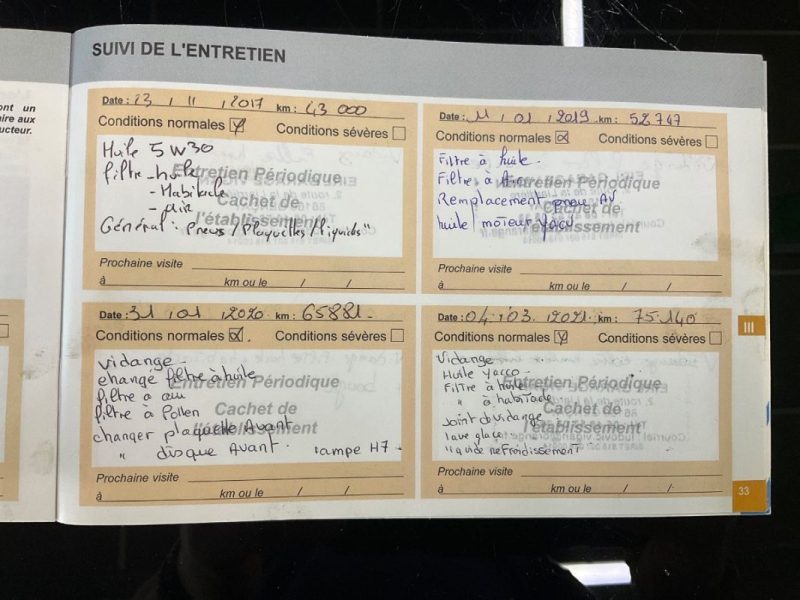 ont un
aire aux
ucteur.
SUIVI DE L'ENTRETIEN
Date : 23 / 11 / 2017 km : 43 000
Conditions normales Conditions sévères
Huile 5W30
filtre - huile
- Habitacle
- air
Général : Pneus / Plaquettes / liquides"
Entretien Périodique
Cachet de
l'établissement
Prochaine visite
à km ou le / /
Date : 11 / 01 / 2019 km : 52 747
Conditions normales Conditions sévères
Filtre à huile
Filtre à Air
Remplacement pneu AV
huile moteur Yacco
Entretien Périodique
Cachet de
l'établissement
Prochaine visite
à km ou le / /
Date : 31 / 01 / 2020 km : 65881
Conditions normales Conditions sévères
Vidange
changé filtre à huile
filtre a air
filtre à Pollen
changer plaquette Avant
" disque Avant. lampe H7
Entretien Périodique
Cachet de
l'établissement
Prochaine visite
à km ou le / /
Date : 04 / 03 / 2021 km : 75 140
Conditions normales Conditions sévères
Vidange
Huile Yacco
Filtre à huile
" à habitacle
Joint de vidange
lave glace
liquide refroidissement
Entretien Périodique
Cachet de
l'établissement
Prochaine visite
à km ou le / /
III
33